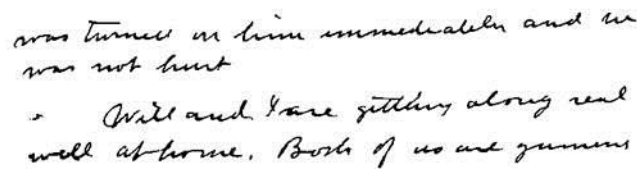 was turned on him immediately and he
was not hurt
Will and I are getting along real
well at home. Both of us are